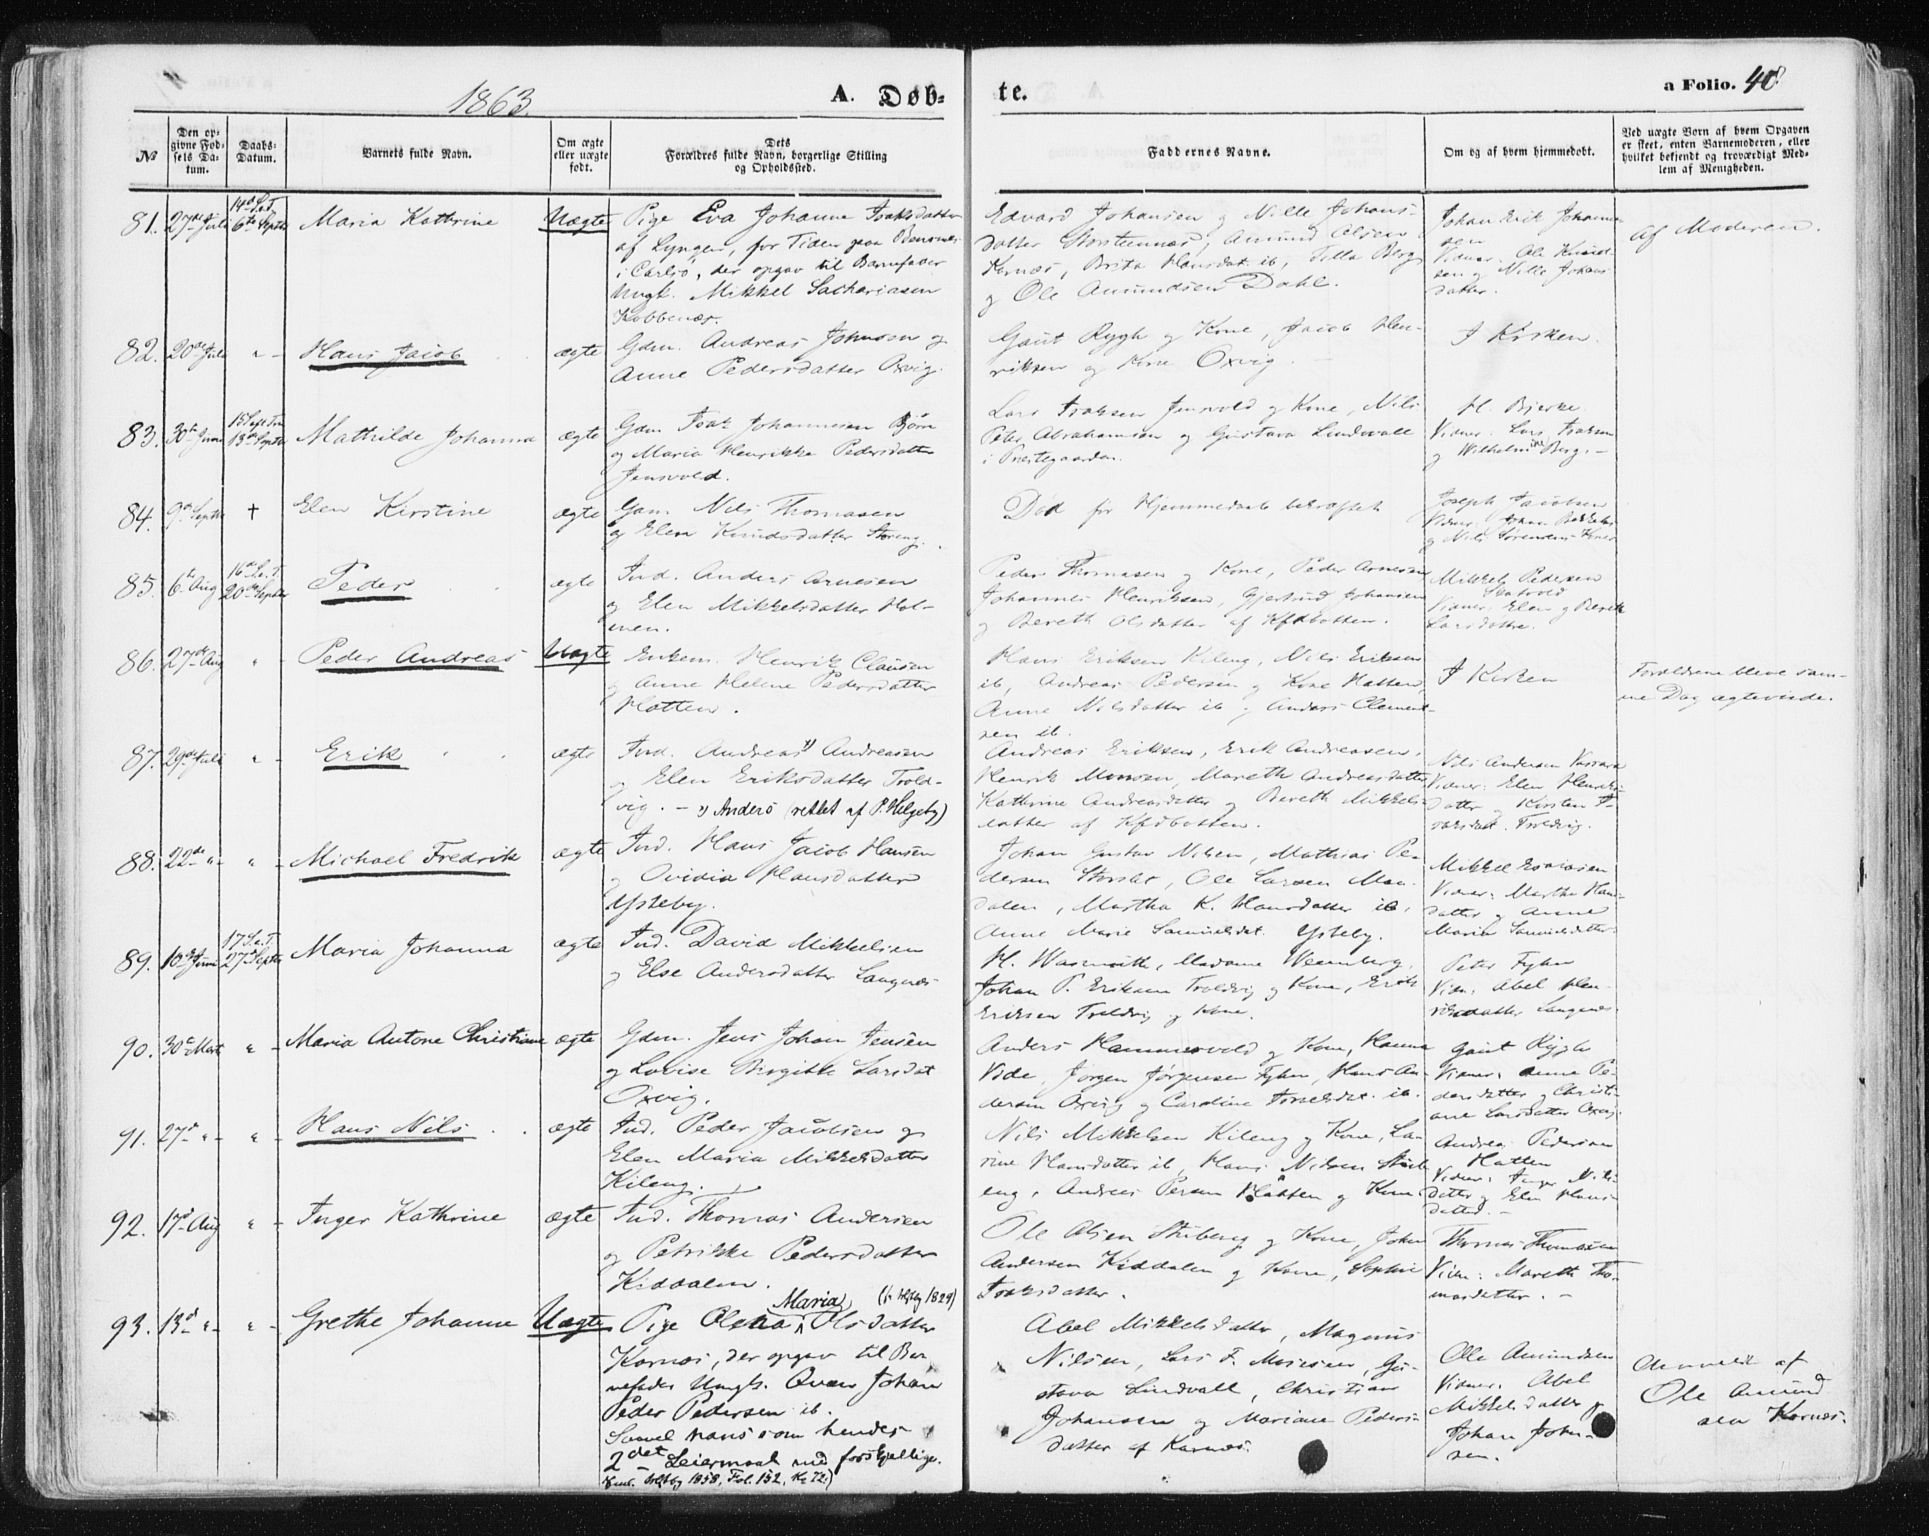 1863.
A. Døb-
te.
a Folio. 40
№
Den op-
givne Fød-
sels Da-
tum.
Daabs-
Datum.
Barnets fulde Navn.
Om ægte
eller uægte
født.
Dets
Forældres fulde Navn, borgerlige Stilling
og Opholdssted.
Faddernes Navne.
Om og af hvem hjemmedøbt.
Ved uægte Børn af hvem Opgaven
er skeet, enten Barnemoderen, eller
hvilket bekjendt og troværdigt Med-
lem af Menigheden.
81. 27de Juli
14de S.e.T.
6te Septbr
Maria Kathrine
Uægte
Pige Eva Johanne Isaksdatter
af Lyngen, for Tiden paa
i Carlsø, der opgav til Barnefader
Ungk. Mikkel Sachariasen
Kobbenæs.
Edvard Johansen og Nille Johans-
datter Storsteennæs, Amund Olsen
Kornæs, Brita Hansdat. ib,
og Ole Amundsen Dahl.
Johan Erik Johanne
sen
Vidner: Ole Knud-
sen og Nille Johans
datter.
af Moderen.
82. 20de Juli " -
Hans Jacob
ægte
Gdm. Andreas Johnsen og
Anne Pedersdatter Oxvig.
Gaut Rygh og Kone, Jacob Hen-
riksen og Kone Oxvig. -
I Kirken.
83. 30te Juni
13de Septbr
Mathilde Johanna
ægte
Gdm Isak Johannesen Bjørn
og Maria Henrikke Pedersdatter
Jensvold.
Lars Isaksen Jensvold og Kone, Nils
Peter Abrahamsen og Gustava Lindvall
i Præstegaarden.
H. Bjerke
Vidner: Lars Isaksen
og Wilhelmine Berg. -
84. 9de Septbr †
Elen Kirstine
ægte
Gdm. Nils Thomasen
og Elen Knudsdatter Storeng.
Død før Hjemmedaab bekræftet
Joseph Jacobsen
Vidner: Johan
og Nils Sørensens Kone
85. 6te Aug
16de S.e.T.
20de Septbr
Peder
ægte
Ind. Anders Arnesen
og Elen Mikkelsdatter Hol-
men.
Peder Thomasen og Kone, Peder Arnesen
Johannes Henriksen, Gjertrud Johansen
og Bereth Olsdatter af Kfdbotten.
Mikkel Pedersen
Vidner: Elen og Bereth
Larsdøttre.
86. 27de Aug "
Peder Andreas
Uægte
Enkem. Henrik Clausen
og Anne Helene Pedersdatter
Hatten.
Hans Eriksen Kileng, Nils Eriksen
ib, Andreas Pedersen og Kone Hatten,
Anne Nilsdatter ib og Anders Clement-
sen ib.
I Kirken
Forældrene bleve sam-
me Dag ægteviede.
87. 29de Juli " -
Erik
ægte
Ind. Andreas 1) Andreasen
og Elen Eriksdatter Trold-
vig. - 1) Anders (rettet af P. Helgeby)
Andreas Eriksen, Erik Andreasen,
Henrik Monsen, Mareth Andreasdatter
Kathrine Andreasdatter og Bereth Mikkels-
datter af Kfdbotten.
Nils Andersen
Vidner: Elen Henriks-
datter og Kirsten
Troldvig.
88. 22de " - " -
Michael Fredrik
ægte
Ind. Hans Jacob Hansen
og Ovidia Hansdatter
Ysteby.
Johan Gustav Nilsen, Mathias Pe-
dersen Storslet, Ole Larsen Man-
dalen, Martha K. Hansdatter ib,
Anne Marie Samuelsdat. Ysteby.
Mikkel Esaiasen
Vidner: Martha Hans-
datter og Anne
Maria Samuelsdatter.
89. 10de Juni
17 S.e.T.
27de Septbr
Maria Johanna
ægte
Ind. David Mikkelsen
og Else Andersdatter Langnæs
H. Wasmuth, Madame Wennberg,
Johan P. Eriksen Troldvig og Kone, Erik
Eriksen Troldvig og Kone.
Peter Fyhn
Vidn: Abel Hen-
riksdatter Langnæs.
90. 30te Marts " -
Maria Antone Christiane
ægte
Gdm. Jens Johan Jensen
og Lovise Birgitte Larsdat
Oxvig.
Anders Hammervold og Kone, Hanna
Vide, Jørgen Jørgensen Fyhn, Hans An-
dersen Oxvig og Caroline ib.
Gaut Rygh
Vidner: Anne Pe-
dersdatter og Christi-
ane Larsdatter Oxvig.
91. 27de " - " -
Hans Nils
ægte
Ind. Peder Jacobsen og
Elen Maria Mikkelsdatter
Kileng.
Nils Mikkelsen Kileng og Kone, La-
rine Hansdatter ib, Hans Nilsen
eng, Andreas Persen Hatten og Kone
Andreas Pedersen
Hatten
Vidner: Inger Nils-
datter og Elen Hans-
datter. -
92. 17de Aug " -
Inger Kathrine
ægte
Ind. Thomas Andersen
og Petrikke Pedersdatter
Kiddalen.
Ole Olsen Stiberg og Kone, John
Andersen Kiddalen og Kone, Sophie
Isaksdatter.
Thomas Thomassen
Vidn: Mareth Tho-
masdatter. -
93. 13de " - " -
Grethe Johanne
Uægte
Maria (f. 1829)
Pige Olena Olsdatter
Kornæs, der opgav til Bar
nefader Ungk. Qvæn Johan
Peder Pedersen ib.
Samt hans som hendes
2det Leiermaal med forskjellige.
1858, Fol. 152, № 72.)
Abel Mikkelsdatter, Magnus
Nilsen, Lars F. Mosesen, Gu-
stava Lindvall, Christian
Johansen og Mariane Peders-
datter af Karnæs.
Ole Amundsen
Vidner: Abel
Mikkelsdatter og
Johan John-
sen.
Anmeldt af
Ole Amund
sen Kornæs.